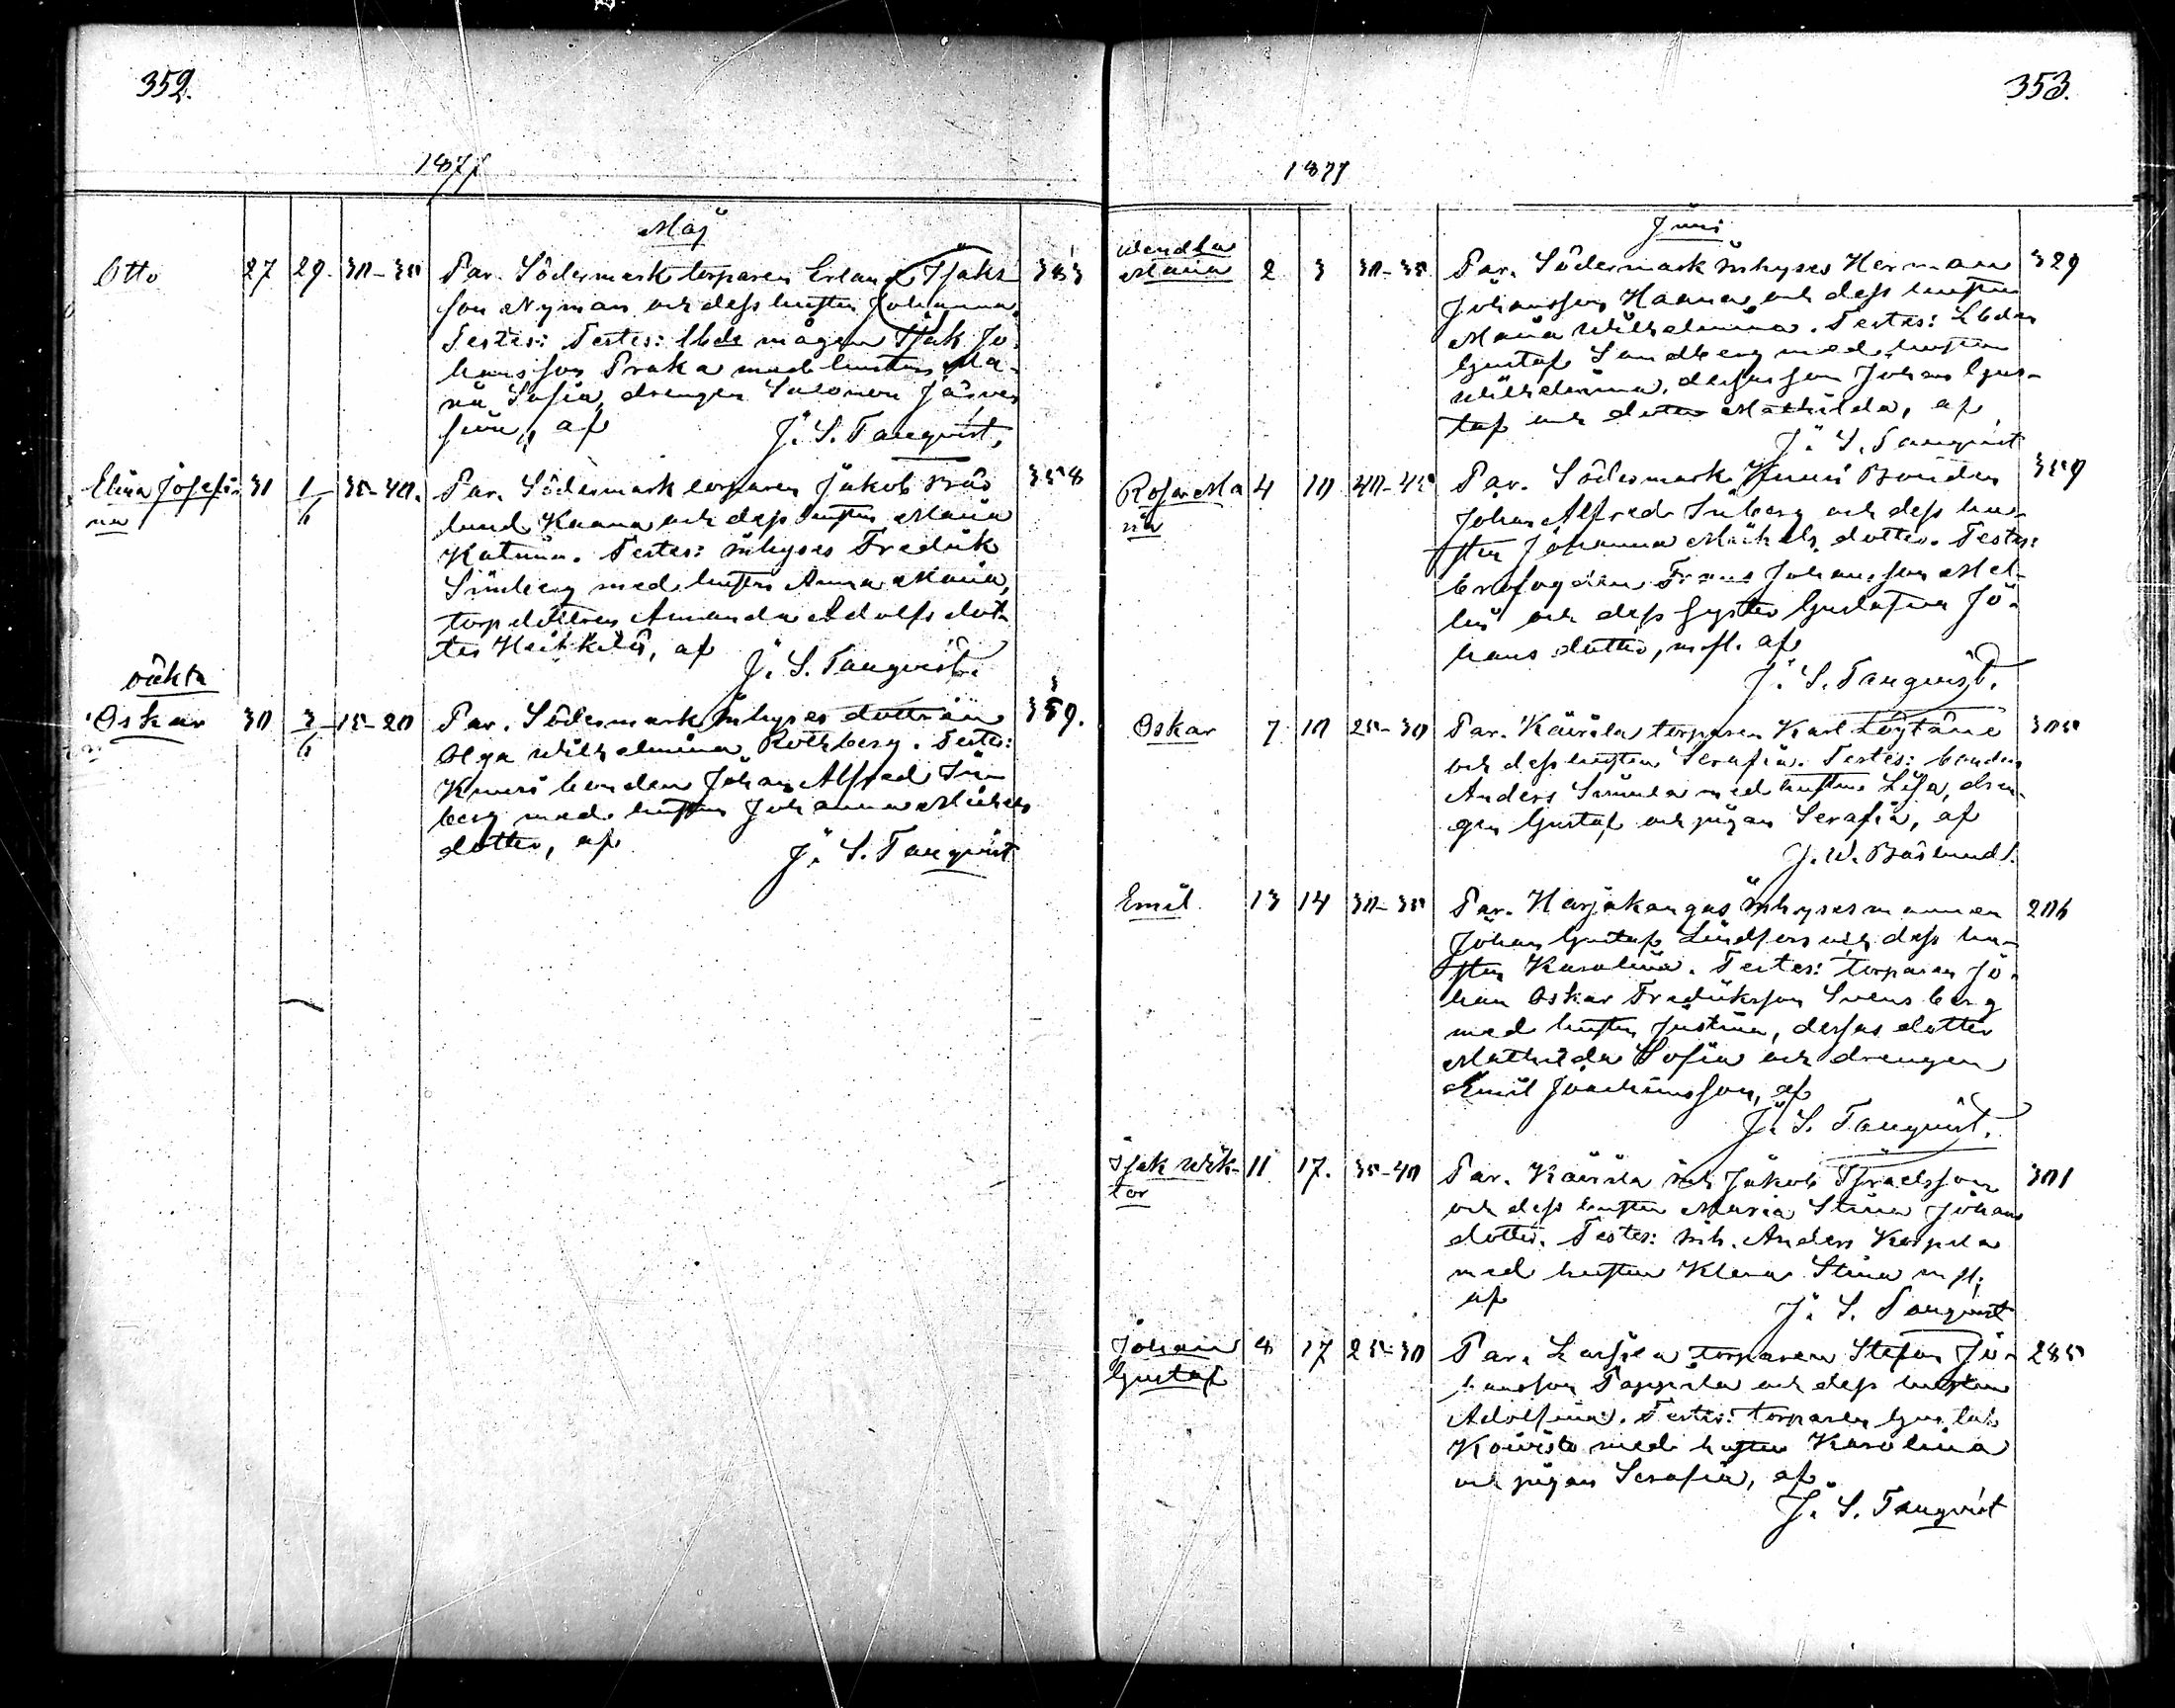 352.
1877
Maj
Otto 27 29. 30-35 Par. Södermark torparen Erland Isaks 333
son Nyman och dess hustru Johanna.
Testes: Testes: Ibde mågen Isak Jo-
hansson Praka med hustru Ma-
ria Sofia, drengen Salomon
af J. S. Tanqvist.
Elina Josefi- 31 1/6 35-40. Par. Södermark torparen Jakob 358
na
lund Kaana och dess hustru Maria
Katrina. Testes: inhyses Fredrik
Sinberg med hustru Anna Maria,
torpdottren Amanda Adolfs dot-
ter Heikkilä, af J. S. Tanqvist.
oäkta
Oskar 30 3/6 15-20 Par. Södermark inhyses dottren 359.
Olga Wilhelmina Rothberg. Testes:
Knuusi bonden Johan Alfred Sin-
berg med hustru Johanna Michels
dotter, af J. S. Tanqvist
353.
1877
Juni
Wendla
Maria 2 3 30-35 Par. Södermark inhyses Herman 329
Johansson Haana och dess hustru
Maria Wilhelmina. Testes: Lbdn
Gustaf Sandberg med hustru
Wilhelmina, dessas son Johan Gus-
taf och dotter Mathilda, af
J. S. Tanqvist
Rosa Ma 4 10 40-45 Par. Södermark Knuusi Bonden 359
ria
Johan Alfred Sinberg och dess hu-
stru Johanna Michels dotter. Testes:
Frans Johansson Mel-
lin och dess syster Gustafva Jo-
hans dotter, m fl. af
J. S. Tanqvist.
Oskar 7 10 25-30 Par. Kairila torparen Karl Löytäne 305
och dess hustru Serafia. Testes: bonden
Anders Simula med hustru Lisa, dren-
gen Gustaf och pigan Serafia, af
J. W. Båslund.
Emil 13 14 30-35 Par. Harjakangas inhysesmannen 206
Johan Gustaf Lindfors och dess hu-
stru Karolina. Testes: torparen Jo-
han Oskar Fredriksson Svensberg
med hustru Justina, dessas dotter
Mathilda Sofia och drengen
Emil Joachimsson, af
J. S. Tanqvist.
Isak Wik- 11 17. 35-40 Par. Kairila inh Jakob Israelsson 301
tor
och dess hustru Maria Stina Johans
dotter. Testes: inh. Anders Korpela
med hustru Klara Stina m fl,
af J. S. Tanqvist
Johan 8 17 25-30 Par. Lassila torparen Stefan Jo- 285
Gustaf
hansson Pappila och dess hustru
Adolfina. Testes: torparen Gustaf
Koivisto med hustru Karolina
och pigan Serafia, af
J. S. Tanqvist